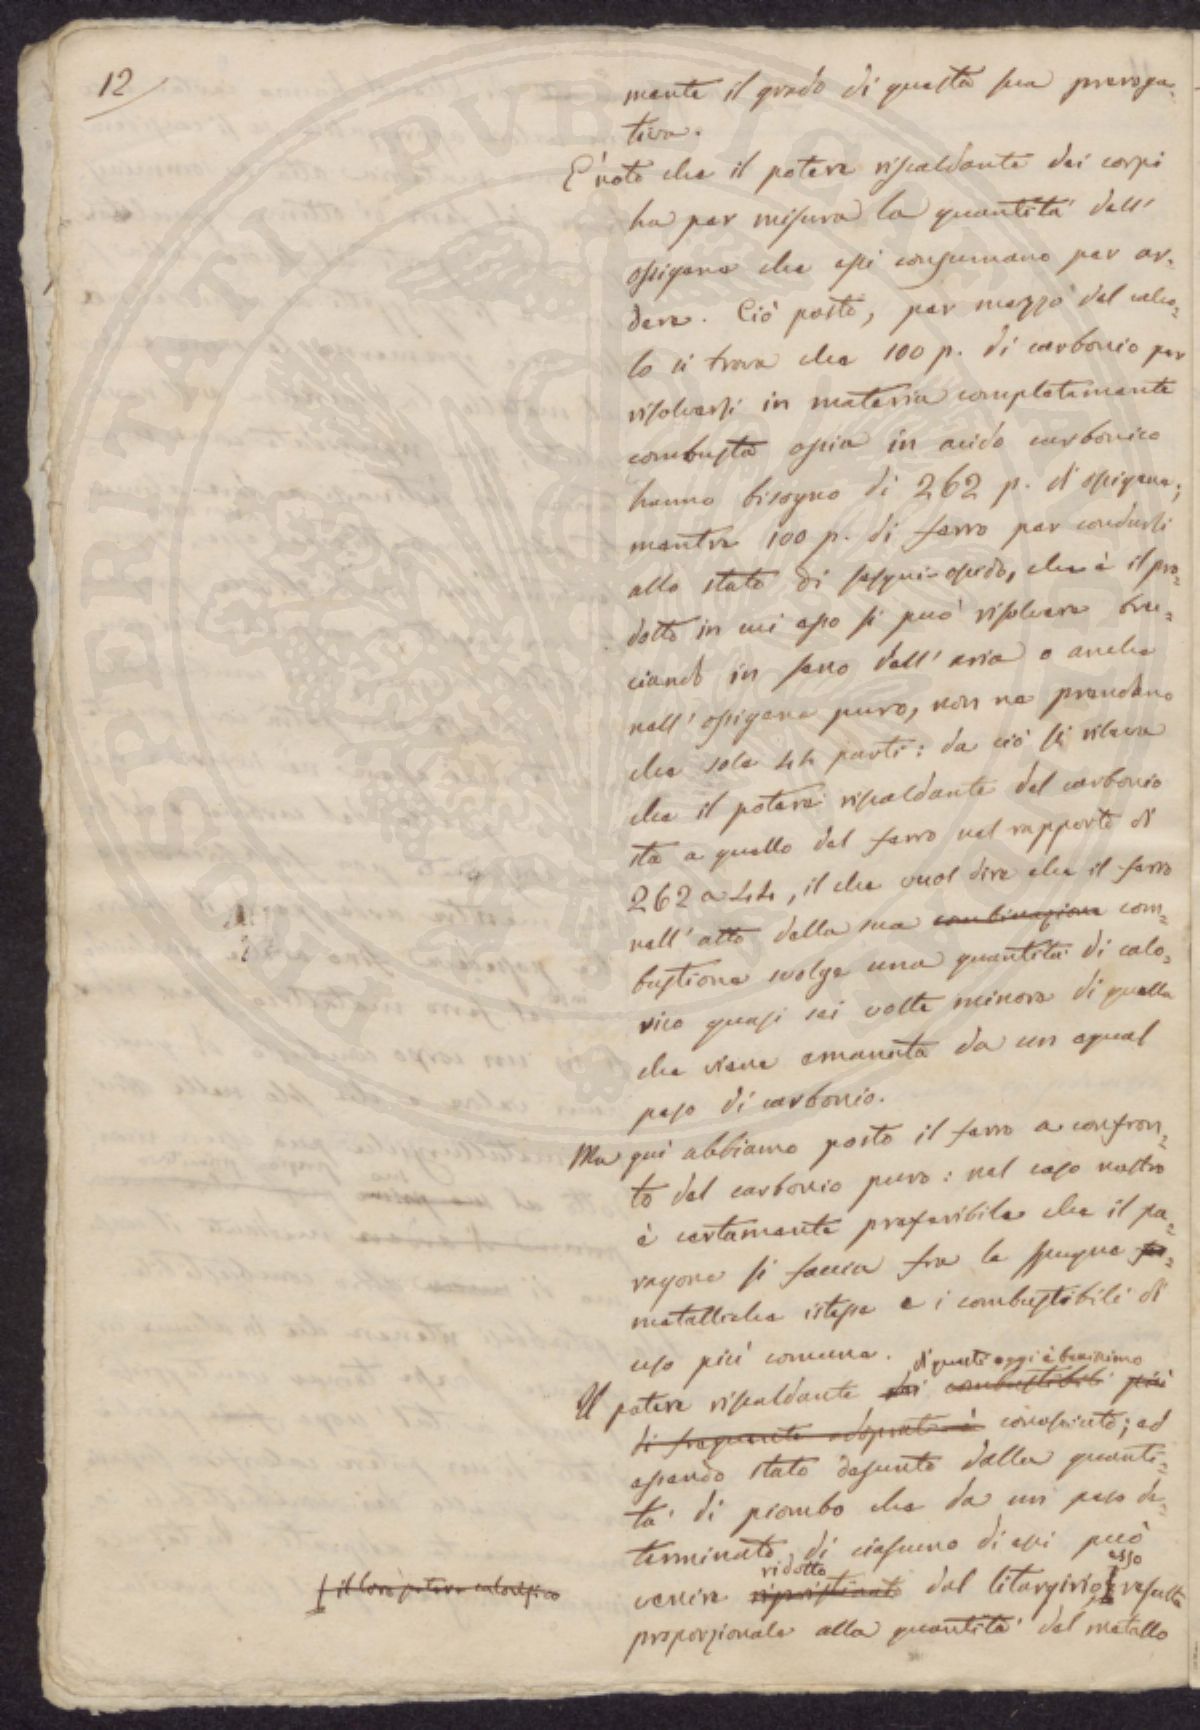 12
mente il grado di questa sua preroga-
tiva.
È noto che il potere riscaldante dei corpi
ha per misura la quantità dell'
ossigene che essi consumano per ar-
dere. Ciò posto, per mezzo del calco=
lo si trova che 100 p. di carbonio per
risolversi in materia completamente
combusta ossia in acido carbonico
hanno bisogno di 262 p. d'ossigene;
mentre 100 p. di ferro per condursi
allo stato di sesqui-ossido, che è il pro=
dotto in cui esso si può risolvere bru=
ciando in seno dell'aria o anche
nell'ossigene puro, non ne prendono
che sole 44 parti: da ciò si rileva
che il potere riscaldante del carbonio
sta a quello del ferro nel rapporto di
262 a 44, il che vuol dire che il ferro
nell'atto della sua combinazione com=
bustione svolge una quantità di calo=
rico quasi sei volte minore di quella
che viene emanata da un egual
peso di carbonio.
Ma qui abbiamo posto il ferro a confron=
to del carbonio puro: nel caso nostro
è certamente preferibile che il pa=
ragone si faccia fra le spugne
metalliche istesse e i combustibili di
uso più comune.
di questi oggi è benissimo
Il potere riscaldante dei combustibili più
di frequente adoprati è conosciuto; ed
essendo stato desunto dalla quanti=
tà di piombo che da un peso de=
terminato di ciascuno di essi può
ridotto esso
venire ripristinato dal litargirio, resulta
il loro potere calorifico
proporzionale alla quantità del metallo